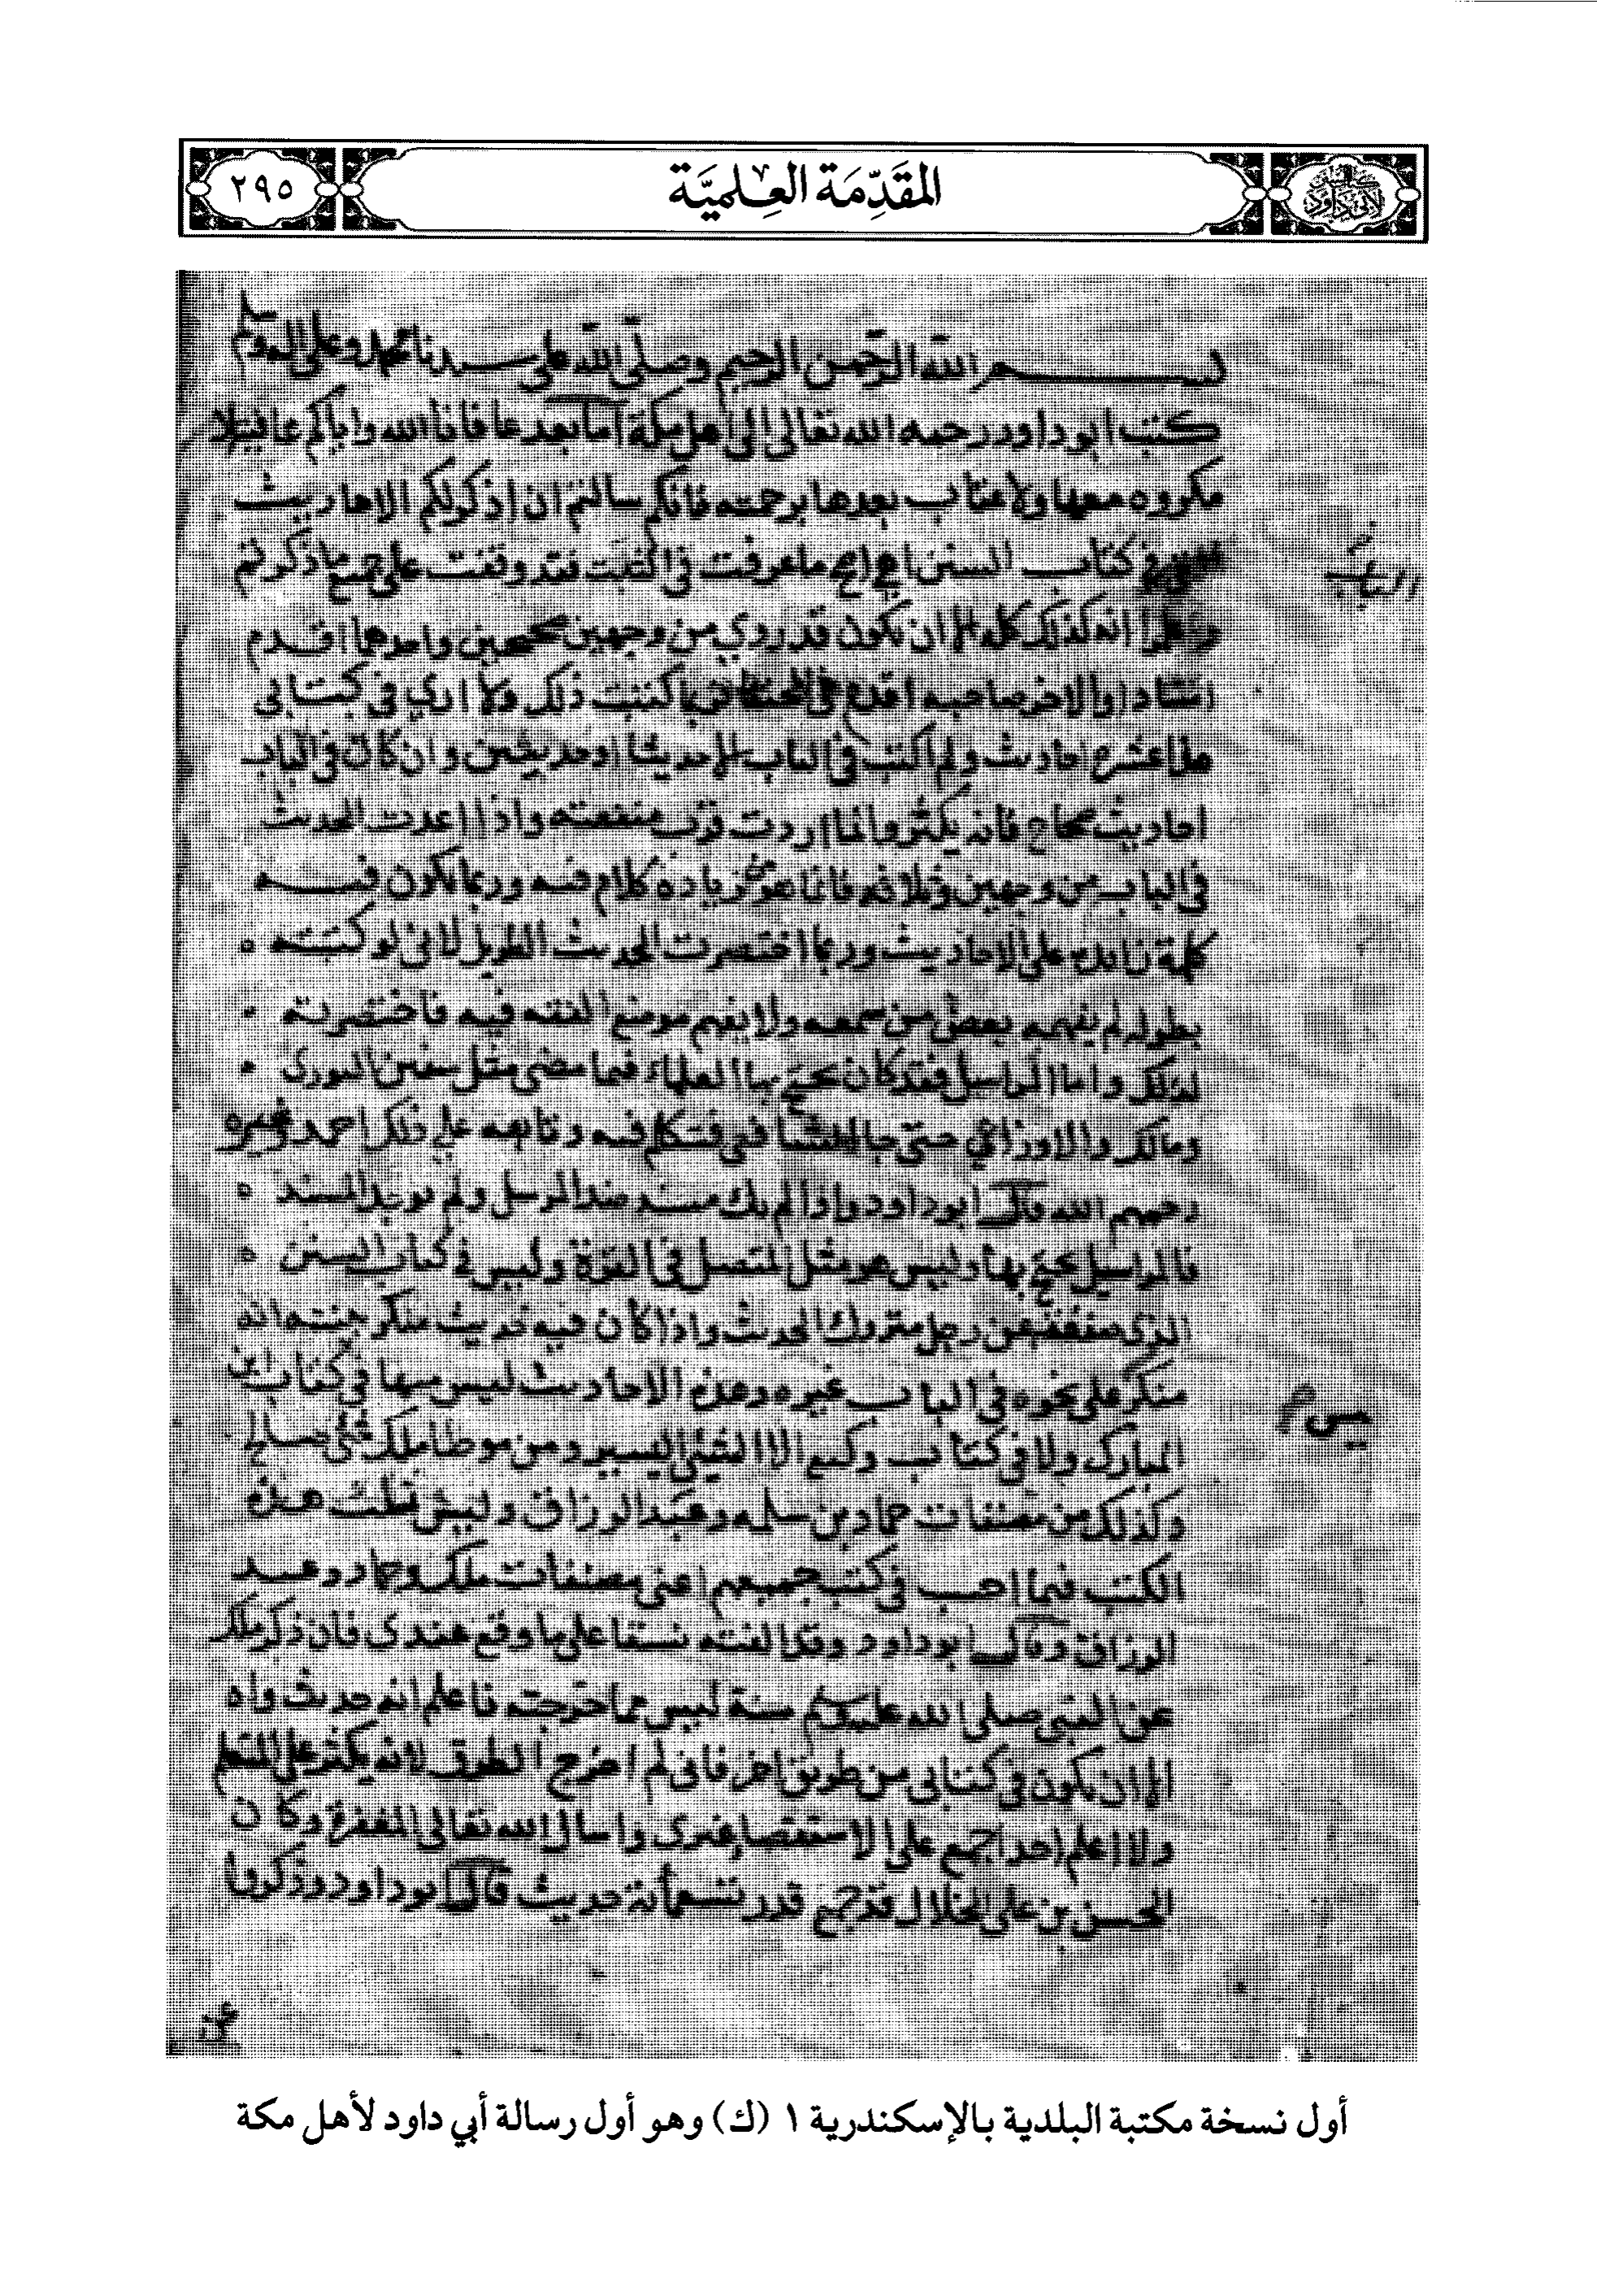 المقَدِّمَة العِلميَّة
٢٩٥
بسم الله الرحمن الرحيم وصلى الله على سيدنا محمد وعلى اله
كتب ابو داود رحمه الله تعالى الى اهل مكة اما بعد عافانا الله واياكم عافية لا
مكروه معها ولا عتاب بعدها برحمته فانكم سالتم ان اذكر لكم الاحاديث
في كتاب السنن اهي اصح ما عرفت في الباب فقد وقفت على جميع ما ذكرتم
الباب
انه كذلك كله الا ان يكون قد روي من وجهين صحيحين واحدهما اقدم
اسنادا والاخر صاحبه اقدم في الحفظ كتبت ذلك ولا اري في كتابى
من هذا عشرة احاديث ولم اكتب في الباب الا حديثا او حديثين وان كان في الباب
احاديث صحاح فانه يكثر وانما اردت قرب منفعته واذا اعدت الحديث
في الباب من وجهين وثلاثه فانما هو من زيادة كلام فيه وربما يكون فيه
كلمة زائدة على الاحاديث وربما اختصرت الحديث الطويل لاني لو كتبته
بطوله لم يفهمه بعض من سمعه ولا يفهم موضع الفقه فيه فاختصرته
لذلك واما المراسيل فقد كان يحتج بها العلماء فيما مضى مثل سفين الثورى
ومالك والاوزاعي حتى جا الشافعي فتكلم فيه وتابعه علي ذلك احمد وغيره
رحمهم الله قال ابو داود واذا لم يك مسند ضد المرسل ولم يوجد المسند
فالمراسيل يحتج بها وليس هو مثل المتصل في القوة وليس في كتاب السنن
الذي صنفته عن رجل متروك الحديث واذا كان فيه حديث منكر بينته انه
منكر على نحوه في الباب غيره وهذه الاحاديث ليس منها في كتاب ابن
المبارك ولا في كتاب وكيع الا الشئ اليسير ومن موطا ملك شئ صالح
وكذلك من مصنفات حماد بن سلمه وعبد الرزاق وليس ثلث هذه
الكتب فيما احسب في كتب جميعهم اعنى مصنفات ملك وحماد وعبد
الرزاق وقال ابو داود وقد الفته نسقا على ما وقع عندى فان ذكر لك
عن النبى صلى الله عليه وسلم سنة ليس مما خرجته فاعلم انه حديث واه
الا ان يكون في كتابى من طريق اخر فانى لم اخرج الطرق لانه يكثر على المتعلم
ولا اعلم احدا جمع على الاستقصا غيرى واسال الله تعالى المغفرة وكان
الحسن بن على الخلال قد جمع قدر تسعمائة حديث قال ابو داود وذكروا
أول نسخة مكتبة البلدية بالإسكندرية ١ (ك) وهو أول رسالة أبي داود لأهل مكة